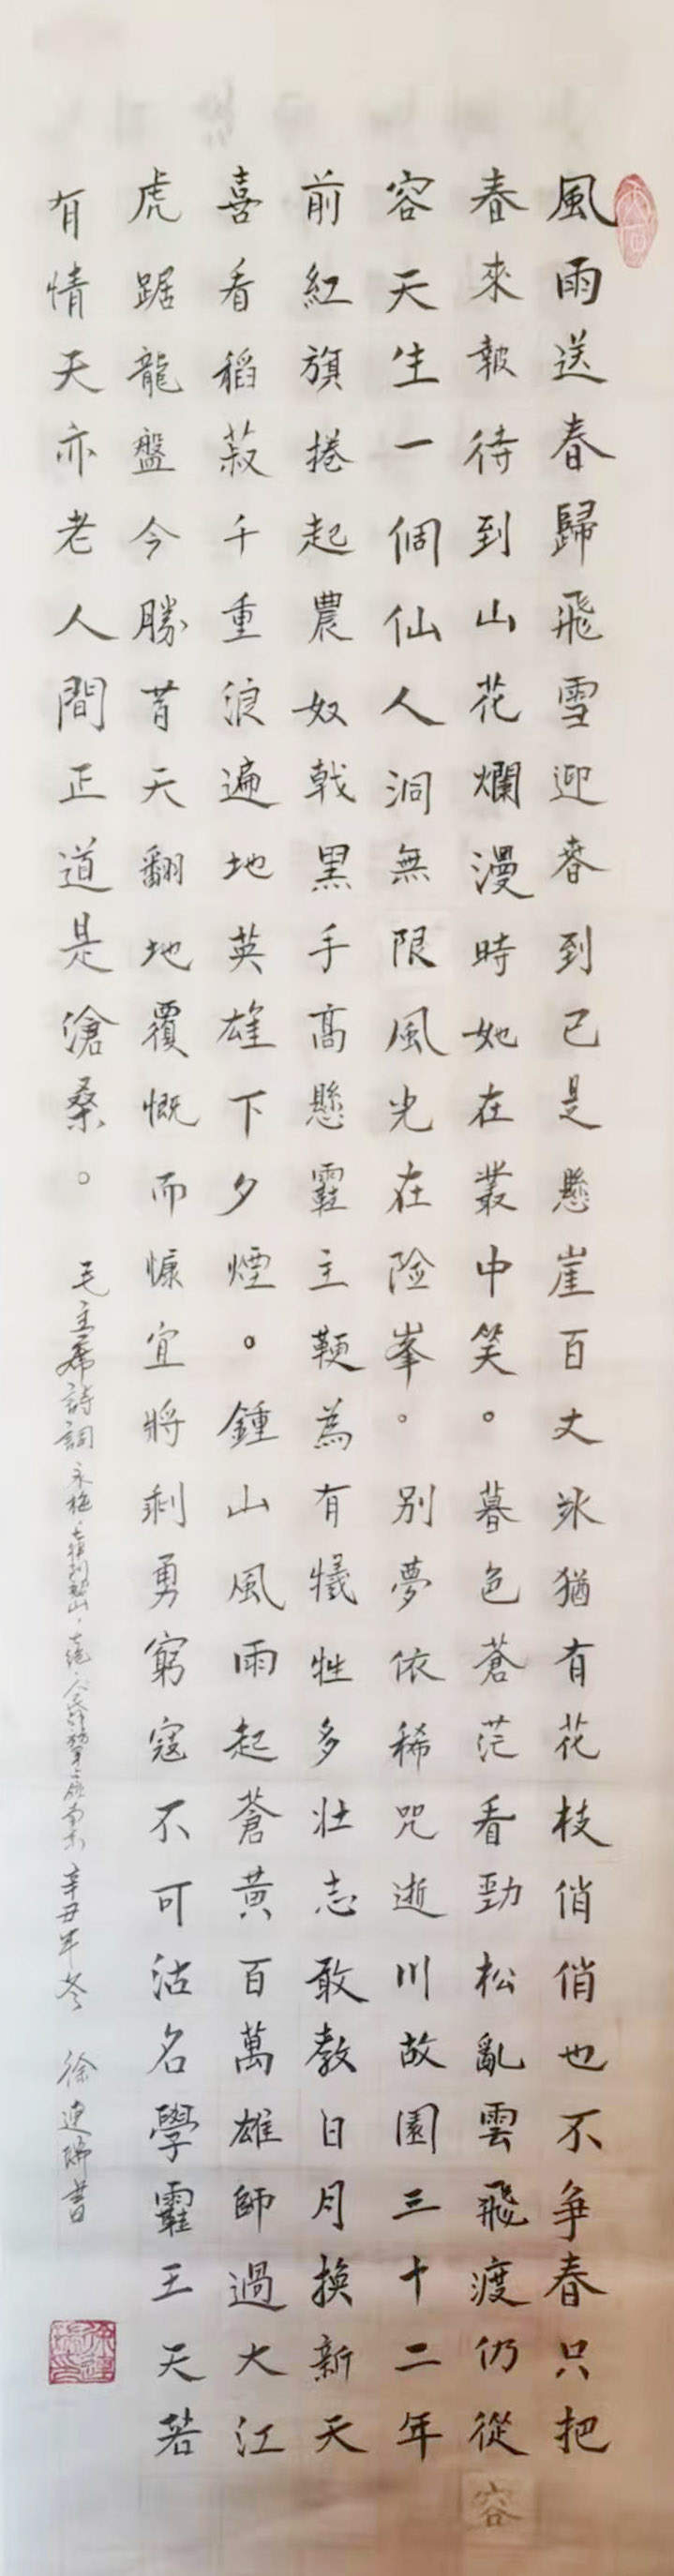 風雨送春歸飛雪迎春到已是懸崖百丈冰猶有花枝俏俏也不争春只把
春來報待到山花爛漫時她在叢中笑。暮色蒼茫看勁松亂雲飛渡仍從
容
容天生一個仙人洞無限風光在险峯。别夢依稀咒逝川故園三十二年
前紅旗捲起農奴戟黑手高懸霸主鞭為有犧牲多壯志敢教日月換新天
喜看稻菽千重浪遍地英雄下夕煙。鍾山風雨起蒼黃百萬雄師過大江
虎踞龍盤今勝昔天翻地覆慨而慷宜將剩勇窮寇不可沽名學霸王天若
有情天亦老人間正道是滄桑。
毛主席詩詞 辛丑年冬 徐建瑞書